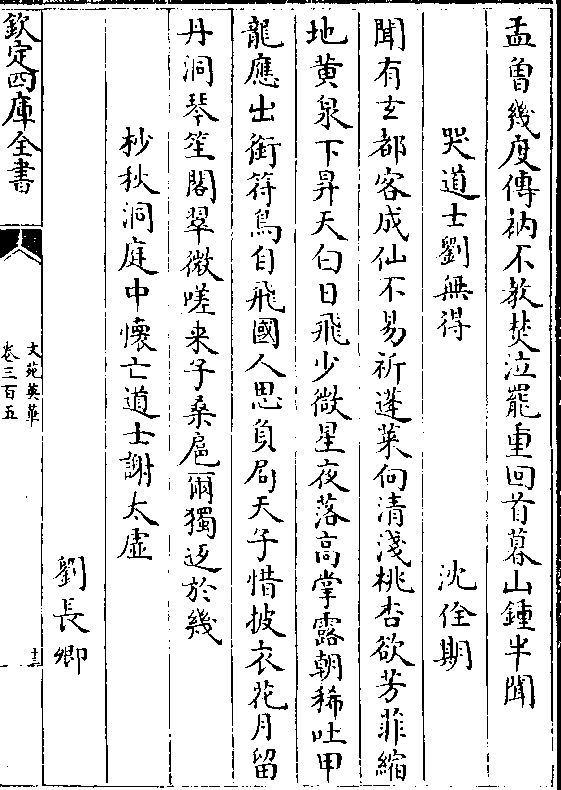 孟曾幾度傳衲不教焚泣罷重回首暮山鍾半聞
哭道士劉無得
沈佺期
聞有玄都客成仙不易祈蓬萊向清淺桃杏欲芳菲縮
地黄泉下昇天白日飛少微星夜落高掌露朝稀吐甲
龍應出銜符鳥自飛國人思負局天子惜披衣花月留
丹洞琴笙閣翠微嗟来子桑扈爾獨返於幾
杪秋洞庭中懷亡道士謝太虚
劉長卿
欽定四庫全書
文苑英華
卷三百五
十三